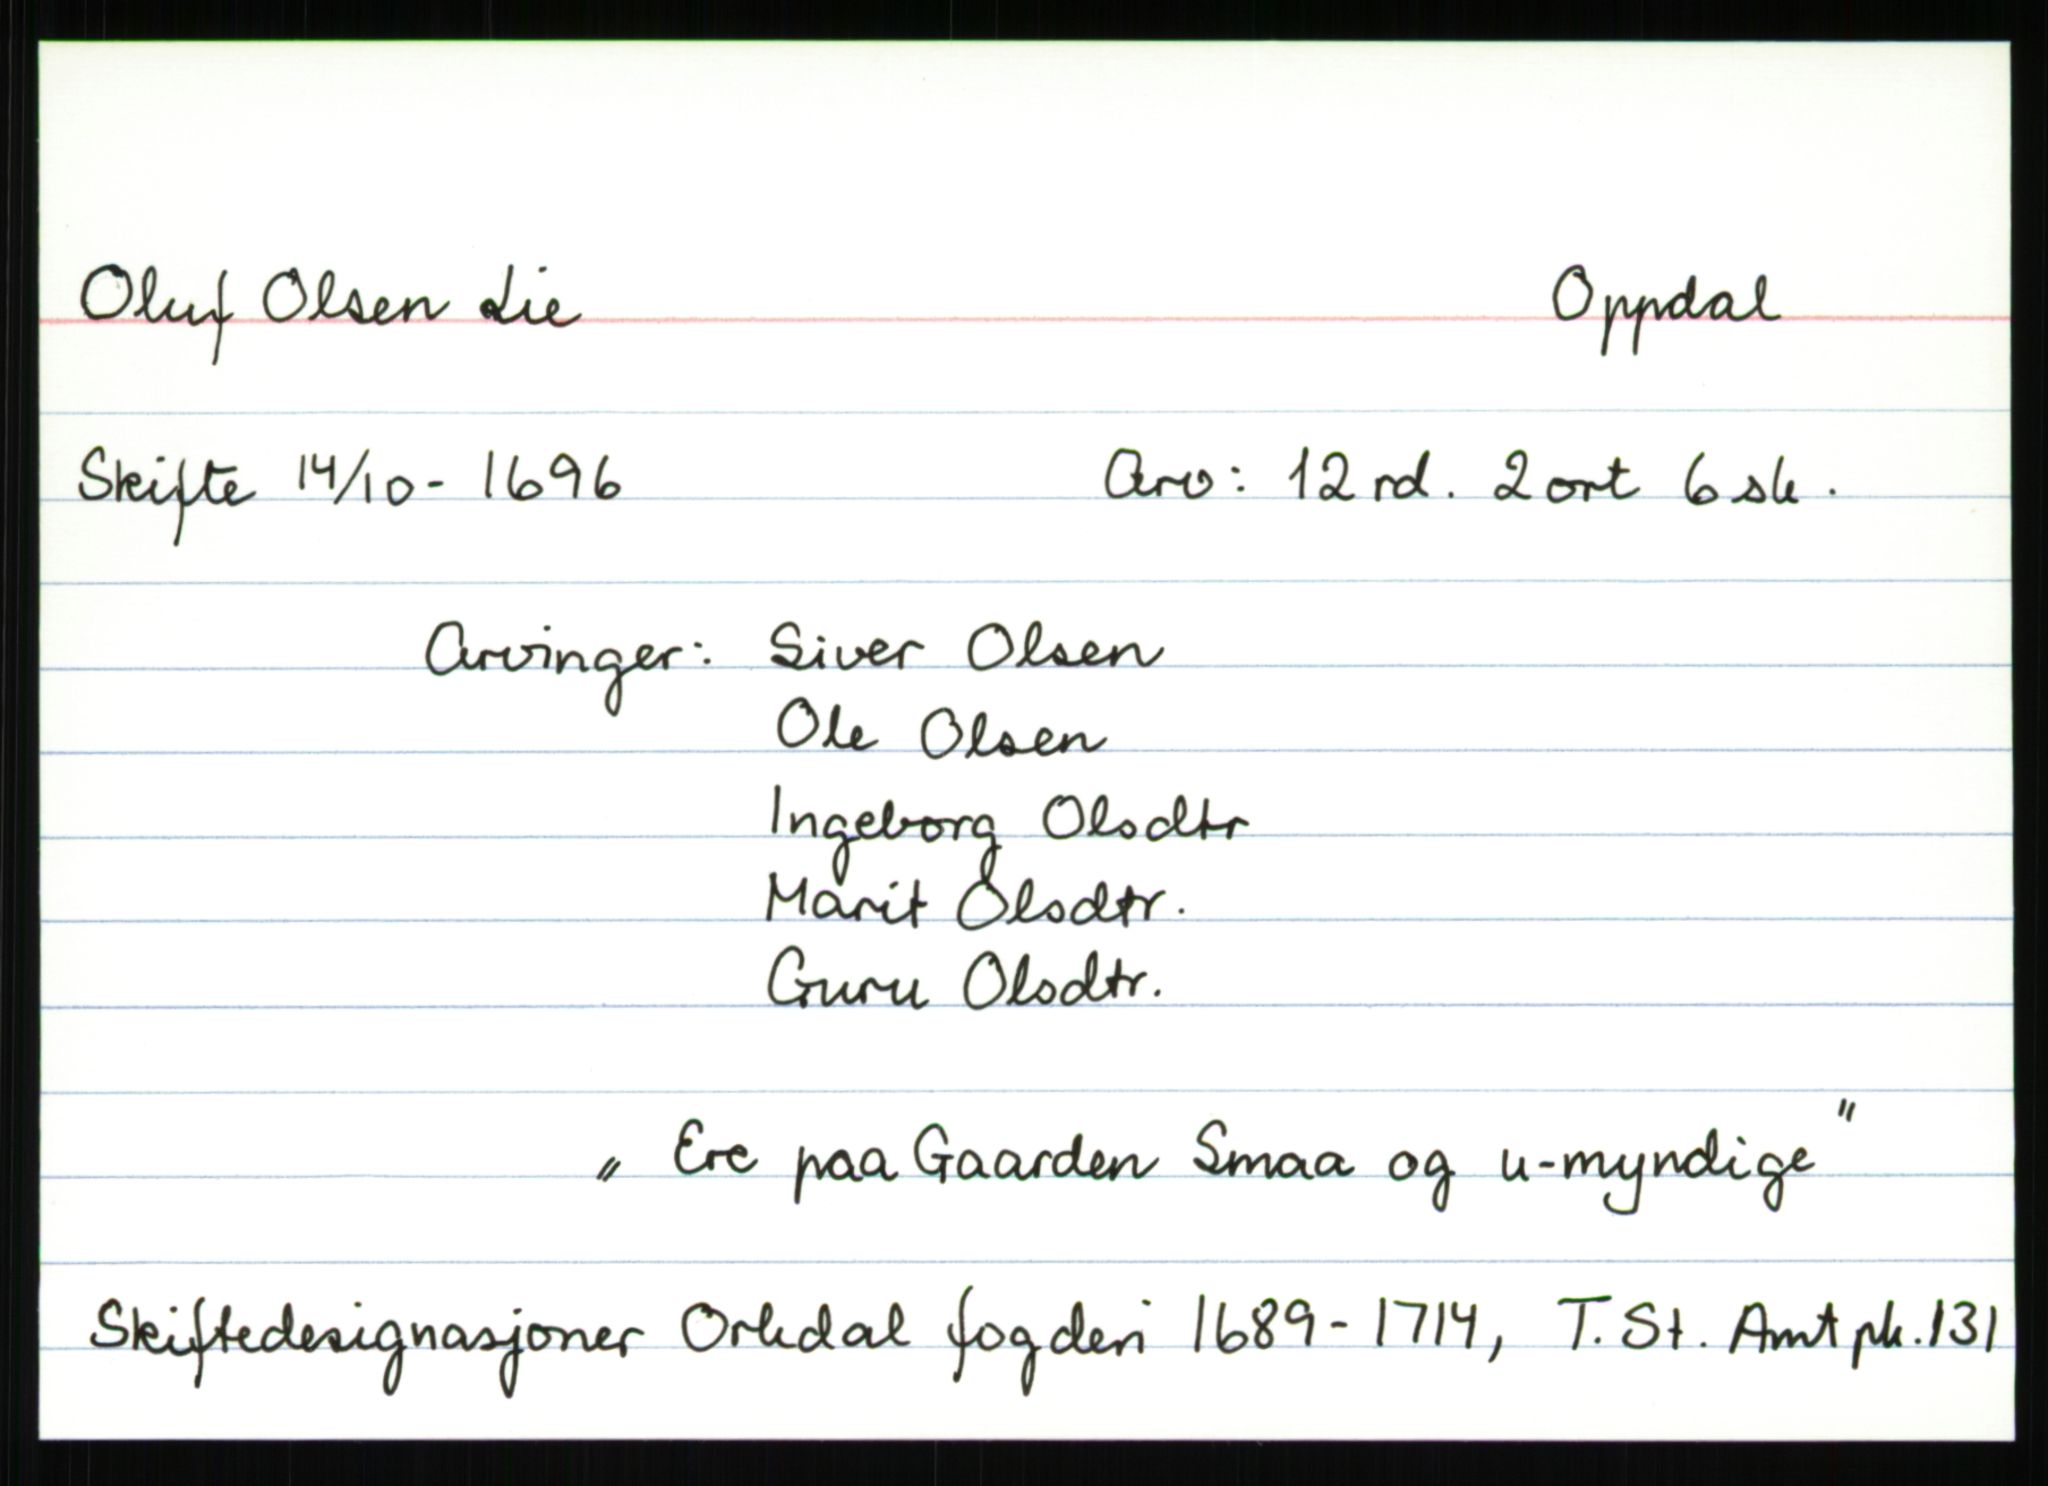 Oluf Olsen Lie Oppdal
Skifte 14/10 - 1696 Arv: 12 rd. 2 ort 6 sk.
Arvinger: Siver Olsen
Ole Olsen
Ingeborg Olsdtr
Marit Olsdtr.
Guru Olsdtr.
„ Ere paa Gaarden Smaa og u-myndige "
Skiftedesignasjoner Orkdal fogderi 1689 - 1714, T. St. Amt pk. 131